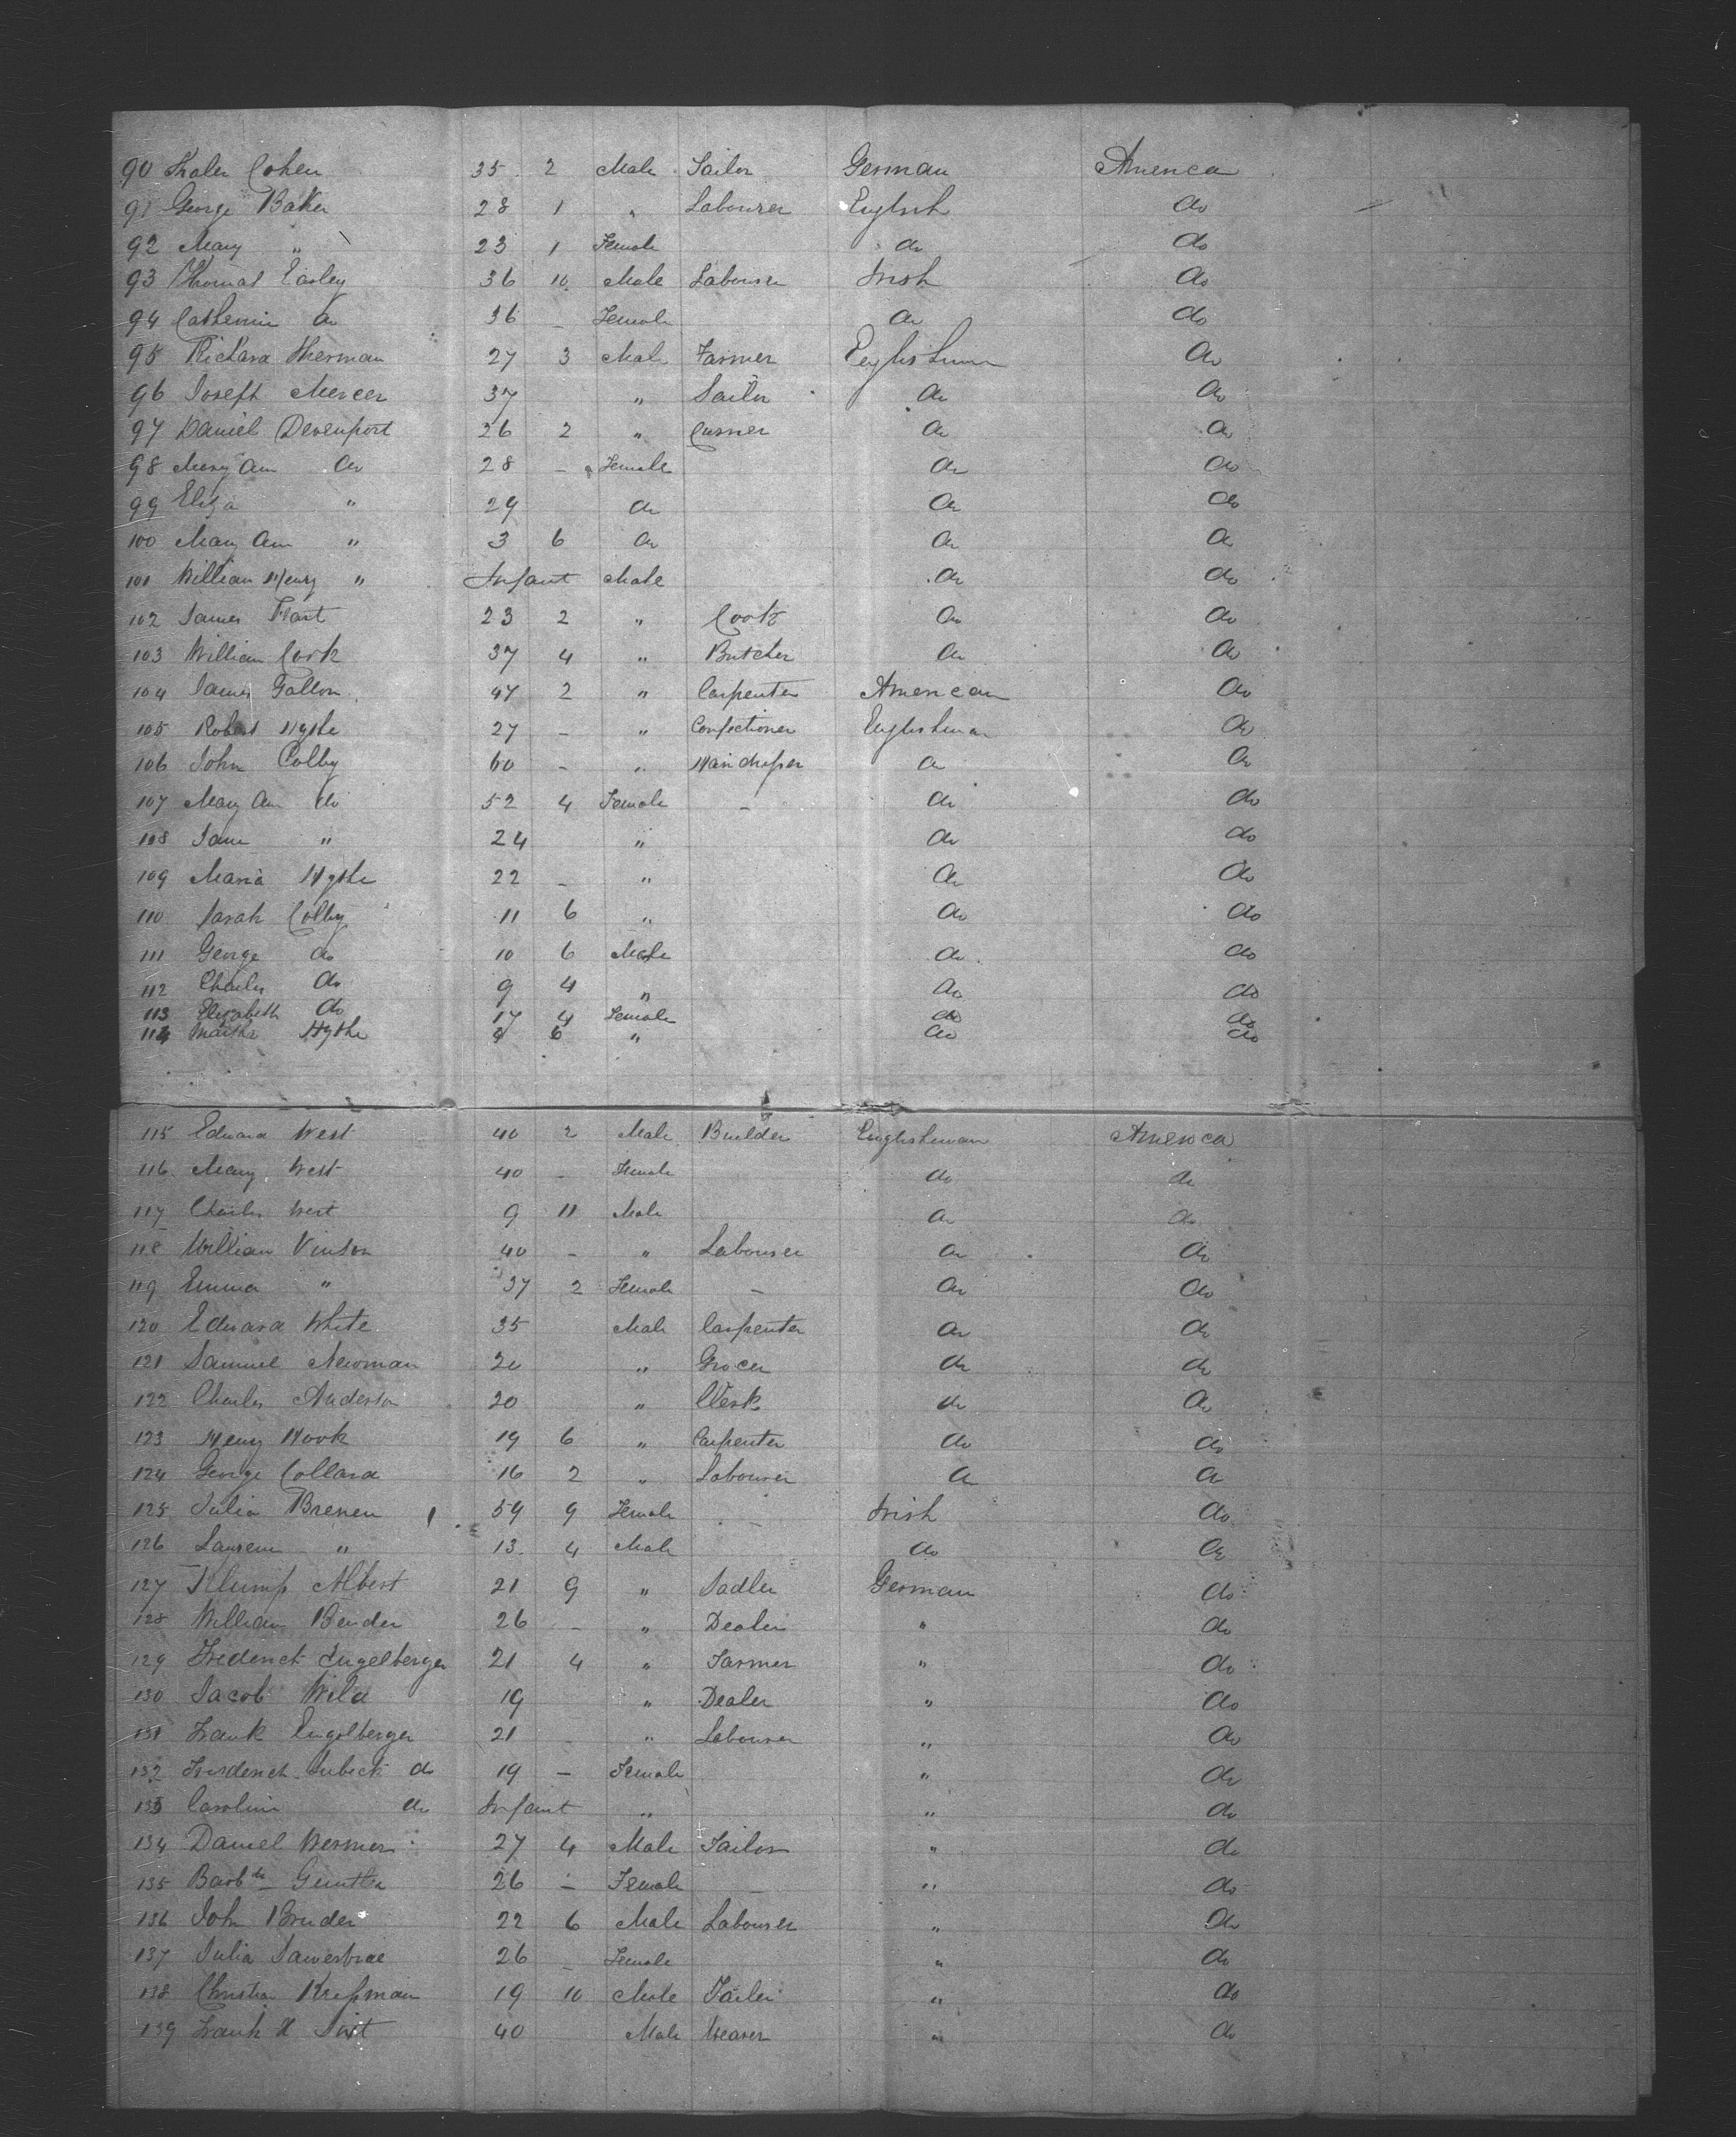 90 Thaler Cohen 35 2 Male Tailor German America
91 George Baker 28 1 " Labourer English do
92 Mary " 23 1 Female do do
93 Thomas Earley 36 10 Male Labourer Irish do
94 Catherine do 36 – Female do do
95 Richard Sherman 27 3 Male Farmer Englishman do
96 Joseph Mercer 37 " Sailor do do
97 Daniel Devenport 26 2 " Currier do do
98 Mary Ann do 28 – Female do do
99 Eliza " 24 do do do
100 Mary Ann " 3 6 do do do
101 William Henry " Infant Male do do
102 James Hart 23 2 " Cook do do
103 William Cork 37 4 " Butcher do do
104 James Fallon 47 2 " Carpenter American do
105 Robert Hythe 27 – " Confectioner Englishman do
106 John Colby 60 – " do do
107 Mary Ann do 52 4 Female – do do
108 Jane " 24 " do do
109 Maria Hythe 22 – " do do
110 Sarah Colby 11 6 " do do
111 George do 10 6 Male do do
112 Charles do 9 4 " do do
113 Elizabeth do 17 4 Female do do
114 Martha Hythe 6 " do do
115 Edward West 40 2 Male Builder Englishman America
116 Mary West 40 – Female do do
117 Charles West 9 11 Male do do
118 William Vinson 40 – " Labourer do do
119 Emma " 37 2 Female – do do
120 Edward White 35 Male Carpenter do do
121 Samuel Newman 20 " Grocer do do
122 Charles Anderson 20 " Clerk do do
123 Henry Hook 19 6 " Carpenter do do
124 George Collard 16 2 " Labourer do do
125 Julia Brenen 59 9 Female – Irish do
126 Laurene " 13 4 Male do do
127 Klump Albert 21 9 " Sadler German do
128 William Bender 26 – " Dealer " do
129 Frederick Engelberger 21 4 " Farmer " do
130 Jacob Wild 19 " Dealer " do
131 Frank Engelberger 21 " Labourer " do
132 Frederick do 19 – Female " do
133 Caroline do Infant " " do
134 Daniel Wermer 27 4 Male Tailor " do
135 Gunther 26 – Female – " do
136 John Bruder 22 6 Male Labourer " do
137 Julia 26 – Female " do
138 Christian 19 10 Male Tailor " do
139 Frank H 40 Male Weaver " do